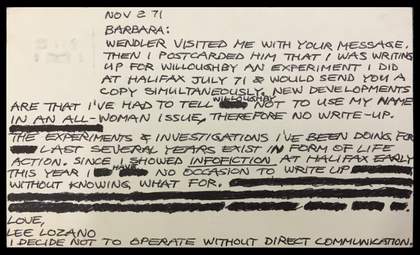 NOV 2 71
BARBARA:
WENDLER VISITED ME WITH YOUR MESSAGE.
THEN I POSTCARDED HIM THAT I WAS WRITING
UP FOR WILLOUGHBY AN EXPERIMENT I DID
AT HALIFAX JULY 71 & WOULD SEND YOU A
COPY SIMULTANEOUSLY. NEW DEVELOPMENTS
ARE THAT I'VE HAD TO TELL WILLOUGHBY NOT TO USE MY NAME
IN AN ALL-WOMAN ISSUE, THEREFORE NO WRITE-UP.
THE EXPERIMENTS & INVESTIGATIONS I'VE BEEN DOING FOR
LAST SEVERAL YEARS EXIST IN FORM OF LIFE
ACTION. SINCE I SHOWED INFOFICTION AT HALIFAX EARLY
THIS YEAR I HAVE NO OCCASION TO WRITE UP
WITHOUT KNOWING WHAT FOR.
LOVE,
LEE LOZANO
I DECIDE NOT TO OPERATE WITHOUT DIRECT COMMUNICATION.